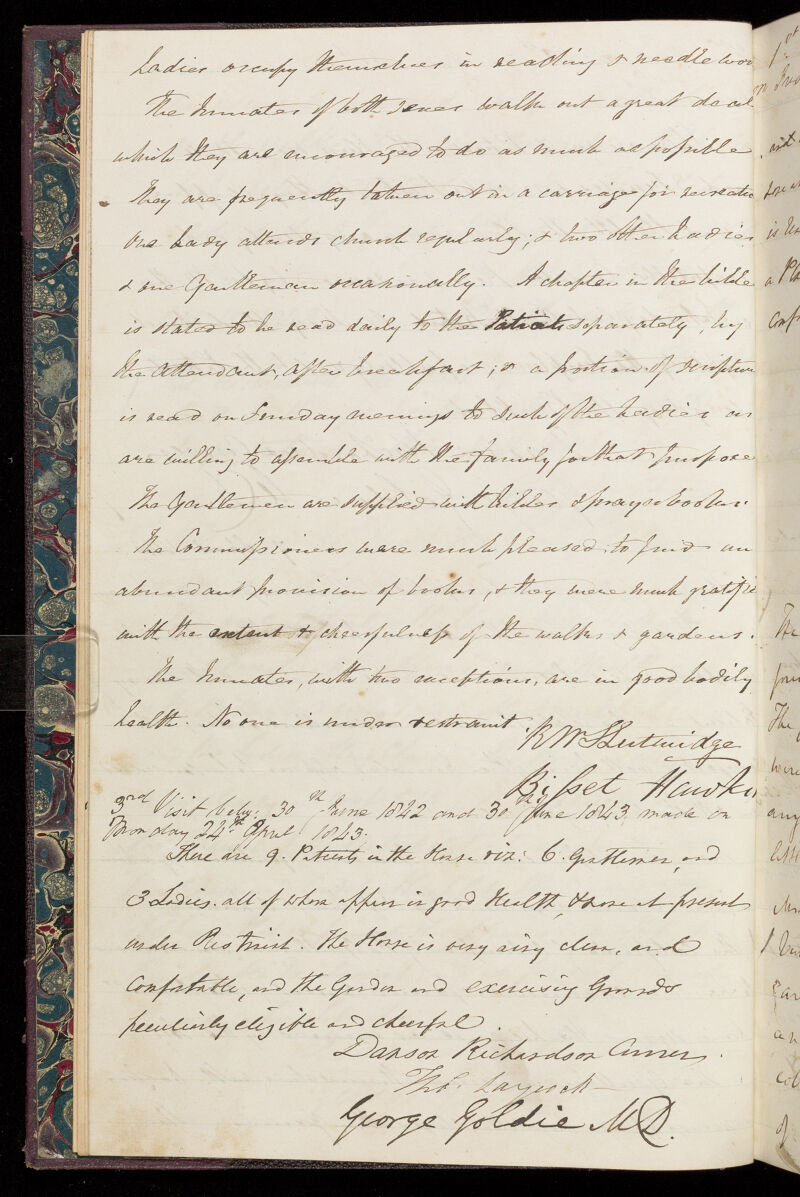 Ladies occupy themselves in reading & needle wor
The Inmates of both sexes walk out a great deal
which they are encouraged to do as much as possible
They are frequently taken out in a carriage for recreatio
One Lady attends church regularly; & two other Ladies
& one Gentleman occasionally. A chapter in the bible
is stated to be read daily to the Patients separately, by
the attendant, after breakfast; & a portion of scripture
is read on Sunday evenings to such of the Ladies as
are willing to assemble with the family for that purpose
The Gentlemen are supplied with bibles & prayer books.
The Commissioners were much pleased to find an
abundant provision of books, & they were much gratifie
with the extent & cheerfulness of the walks & gardens.
The Inmates, with two exceptions, are in good bodily
health. No one is under restraint.
R W S Lutwidge
Bisset Hawkin
3rd Visit betw: 30th June 1842 and 30th June 1843. made on
Monday 24th April 1843.
There are 9. Patients in the House viz: 6. Gentlemen, and
3 Ladies. all of whom appear in good Health, & none at present
under Restraint. The House is very airy clean, and
Comfortable, and the Garden and exercising Grounds
peculiarly eligible and cheerful.
Danson Richardson Currer.
Thos. Laycock
George Goldie MD.